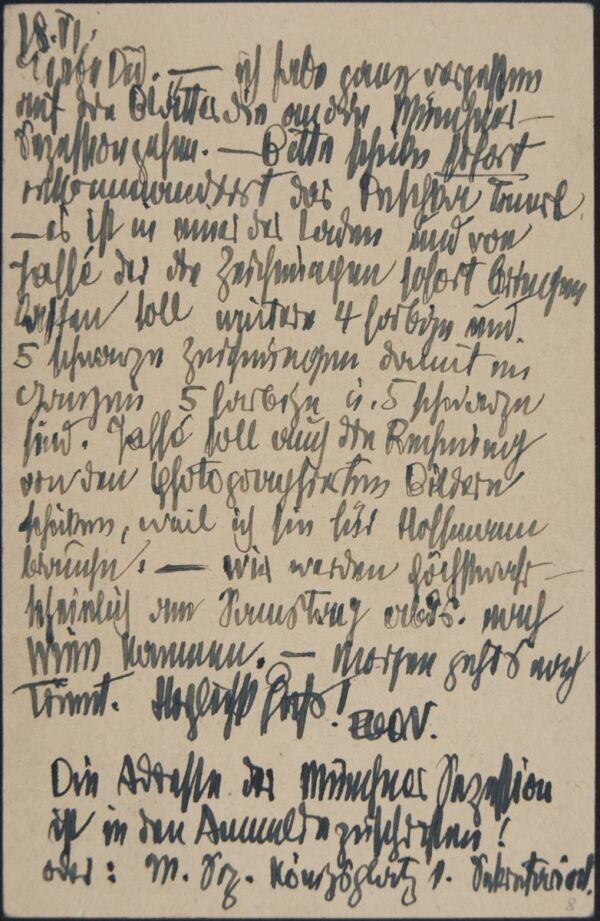 18. VI.
Liebe Did. — ich habe ganz vergessen
auf die Blätter die an die Münchner
Sezession gehen. — Bitte schicke sofort
rekommandiert das
— es ist in einer der Laden und von
Jaffé der die Zeichnungen sofort bringen
lassen soll weitere 4 farbige und
5 schwarze Zeichnungen damit im
Ganzen 5 farbige u. 5 schwarze
sind. Jaffé soll auch die Rechnung
von den photographierten Bildern
schicken, weil ich sie für Hoffmann
brauche. — wir werden höchstwahr-
scheinlich am Samstag abds. nach
Wien kommen. — Morgen gehts nach
Herzlichst
Die Adresse der Münchner Sezession
ist in den Anmeldezuschriften!
oder: M. Sez. Königsplatz 1. Sekretariat.
8